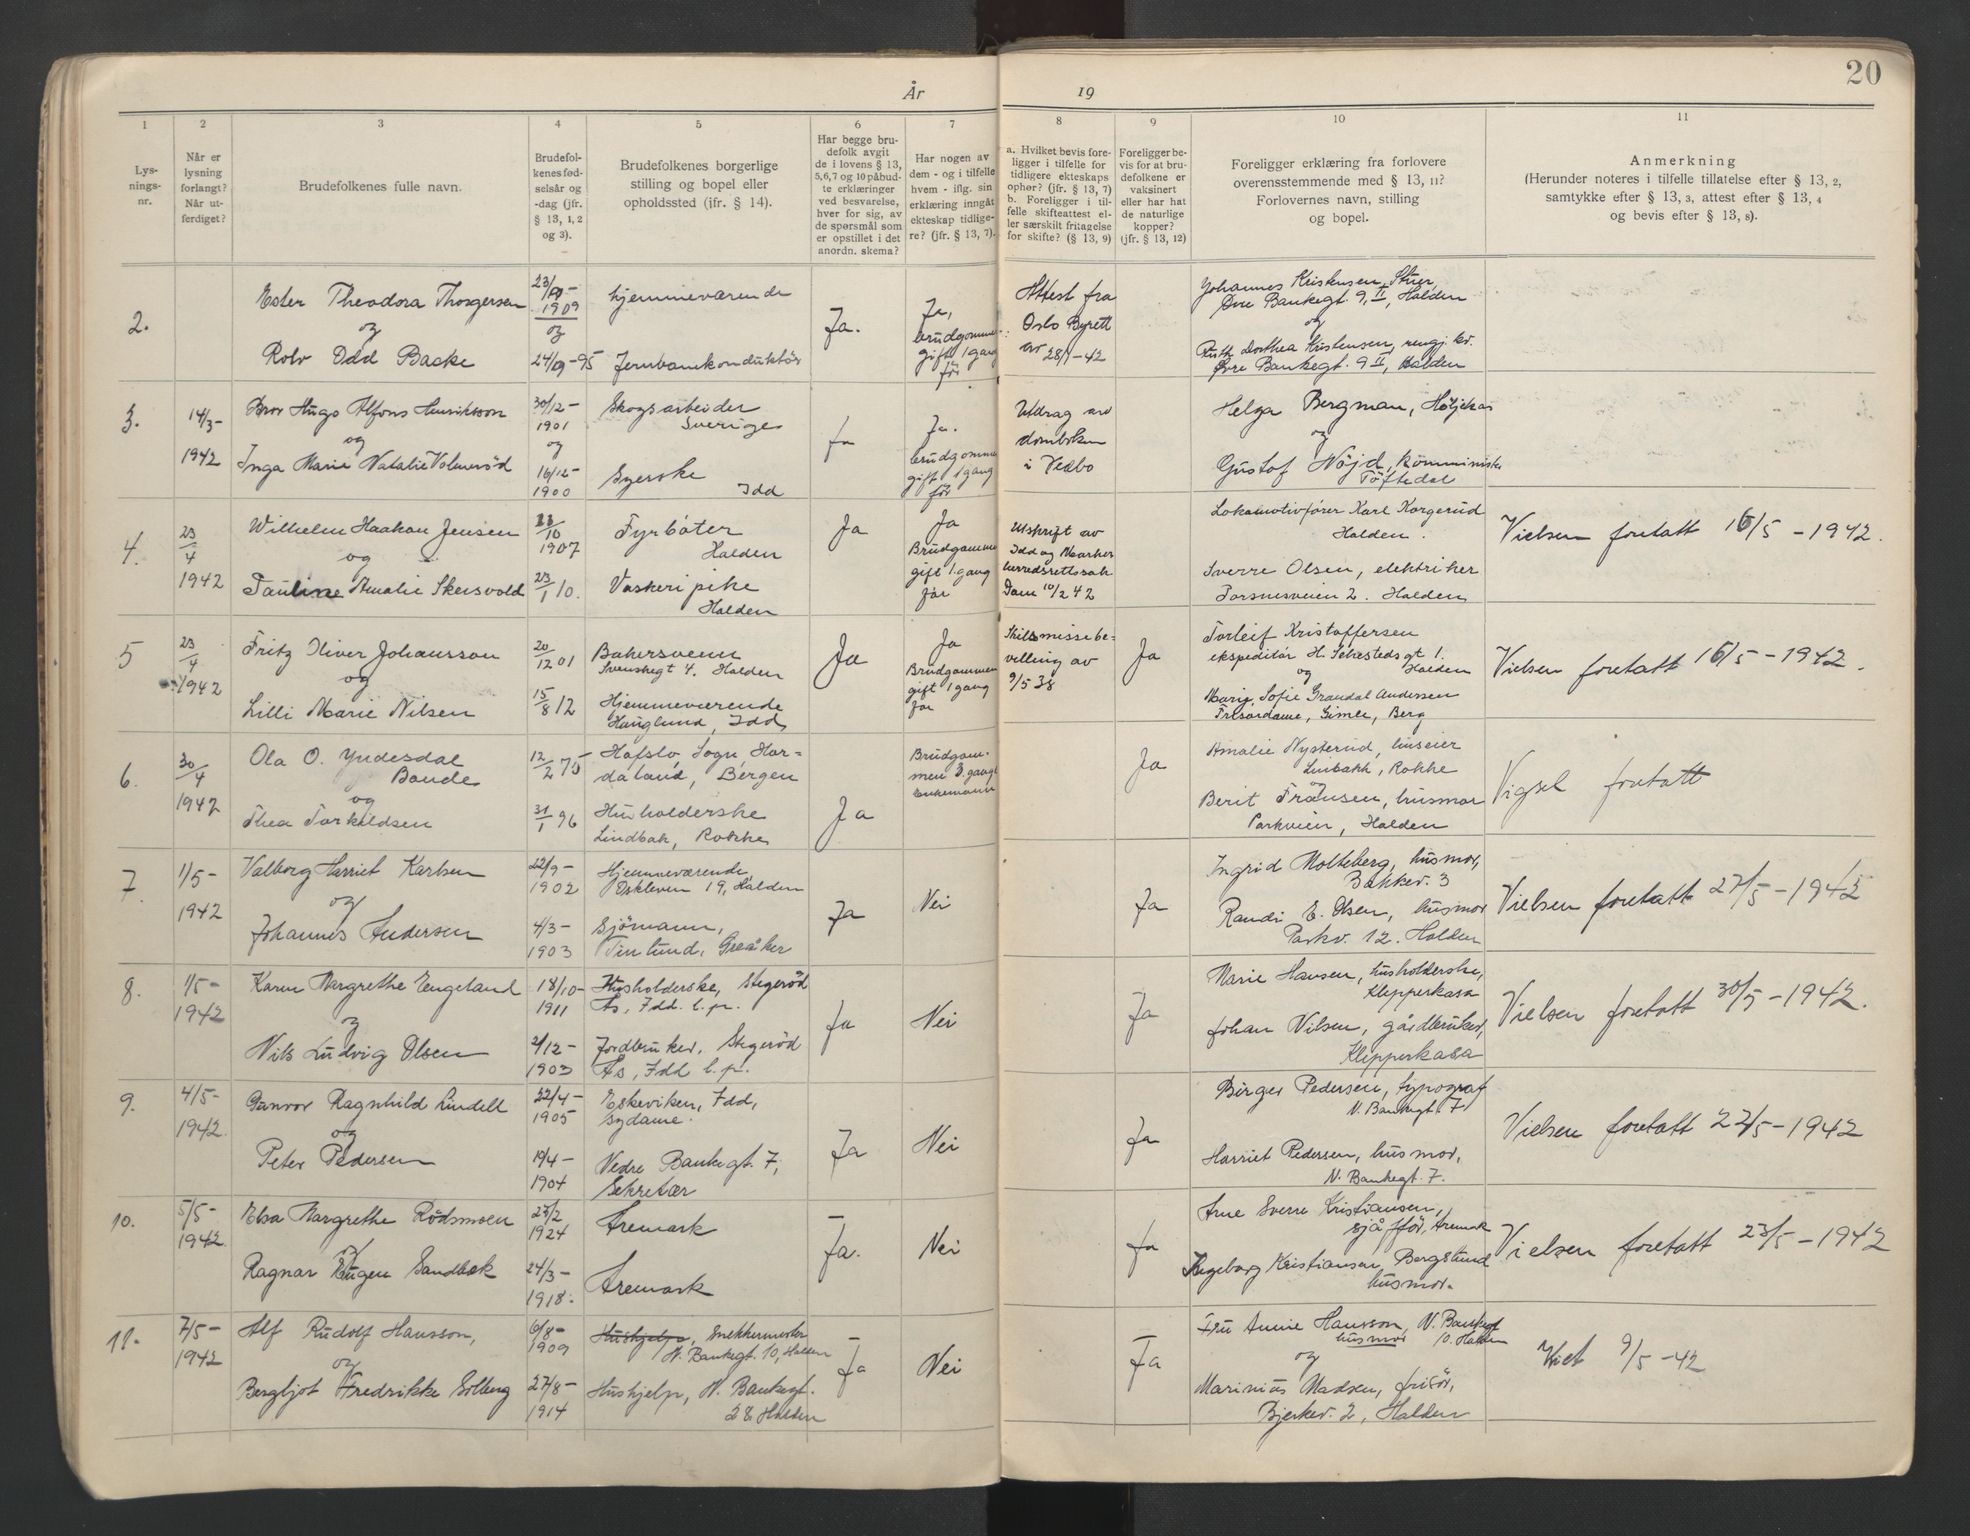 År
19
20
1
2
3
4
5
6
7
8
9
10
11
Lys-
nings-
nr.
Når er
lysning
forlangt?
Når ut-
ferdiget?
Brudefolkenes fulle navn.
Brudefol-
kenes fød-
selsår og
-dag (jfr.
§ 13, 1, 2
og 3).
Brudefolkenes borgerlige
stilling og bopel eller
opholdssted (jfr. § 14).
Har begge bru-
defolk avgit
de i lovens § 13,
5, 6, 7 og 10 påbud-
te erklæringer
ved besvarelse,
hver for sig, av
de spørsmål som
er opstillet i det
anordn. skema?
Har nogen av
dem - og i tilfelle
hvem - iflg. sin
erklæring inngåt
ekteskap tidlige-
re? (jfr. § 13, 7).
a. Hvilket bevis fore-
ligger i tilfelle for
tidligere ekteskaps
ophør? (jfr. § 13, 7)
b. Foreligger i til-
felle skifteattest el-
ler særskilt fritagelse
for skifte? (§ 13, 9)
Foreligger be-
vis for at bru-
defolkene er
vaksinert
eller har hat
de naturlige
kopper?
(jfr. § 13, 12)
Foreligger erklæring fra forlovere
overensstemmende med § 13, 11?
Forlovernes navn, stilling
og bopel.
Anmerkning
(Herunder noteres i tilfelle tillatelse efter § 13, 2,
samtykke efter § 13, 3, attest efter § 13, 4
og bevis efter § 13, 8).
2.
Ester Theodora Thorgersen
og
Rolv Odd Backe
1909
og
hjemmeværende
Jernbanekonduktör
Ja.
Ja,
brudgommen
gift 1 gang
för
Attest fra
Oslo Byrett
av 28/1-42
Johannes Kristensen, Stuer,
Övre Bankegt. 9 II, Halden
og
Ruth Dorthea Kristensen, rengj. kv.
Övre Bankegt. 9 II, Halden
3.
14/3-
1942
Bror Hugo Alfons Henriksson
og
Inga Marie Natalie Volmeröd
30/12-
1901
og
16/12-
1900
Skogsarbeider
Sverige
Syerske
Idd
Ja
Ja.
brudgommen
gift 1 gang
för
Utdrag av
domboken
i Vedbo
Helga Bergman, Höljekas
og
Gustof Nöjd, Komminister
Töftedal
4.
23/4
1942
Wilhelm Haakon Jensen
og
Pauline Amalie Skersvold
1907
23/1 10.
Fyrböter
Halden
Vaskeri pike
Halden
Ja
Ja
Brudgommen
gift 1. gang
för
Utskrift av
Idd og Marker
herredsrettssak
Dom 10/2 42
Lokomotivfører Karl Korgerud
Halden.
Sverre Olsen, elektriker
Torsnesveien 2. Halden
Vielsen foretatt 16/5-1942.
5
23/4
1942
Fritz Oliver Johansson
og
Lilli Marie Nilsen
20/12 01
15/8 12
Bakersvenn
Svenskegt 4. Halden
Hjemmeværende
Hauglund, Idd
Ja
Ja
Brudgommen
gift 1 gang
för
Skilsmissebe-
villing av
9/5 38
Ja
Torleif Kristoffersen
ekspeditör H. Sehestedsgt 1.
og Halden
Marie Sofie Grandal Andersen
Frisørdame, Gimle, Berg
Vielsen foretatt 16/5-1942.
6.
30/4
1942
Ola O. Yndesdal
Bonde
og
Thea Torkildsen
12/2 75
31/1 96
Hafslo, Sogn Hor-
daland, Bergen
Husholderske
Lindbak, Rokke
Ja
Brudgom-
men 3. gangs
Enkemann
Ja
Amalie Nysterud, huseier
Linbakk, Rokke
og
Berit Fransen, husmor
Parkveien, Halden
Vigsel foretatt
7.
1/5-
1942
Valborg Harriet Karlsen
og
Johannes Andersen
22/9-
1902
4/3-
1903
Hjemmeværende,
Oskleven 19, Halden
Sjömann,
Tinlund, Greåker
Ja
Nei
Ja
Ingrid Molteberg, husmor,
Bakkev. 3
Randi E. Olsen, husmor
Parkv. 12. Halden
Vielsen foretatt 27/5-1942
8.
1/5-
1942
Karen Margrethe Engeland
og
Nils Ludvig Olsen
18/10-
1911
2/12-
1903
Husholderske, Stegeröd
Ås, Idd l.p.
Jordbruker, Stegeröd
Ås, Idd l.p.
Ja
Nei
Ja
Marie Hansen, husholderske,
Klepperkasa
Johan Nilsen, gårdbruker,
Klepperkasa
Vielsen foretatt 30/5-1942.
9.
4/5-
1942.
Gunvor Ragnhild Lindell
og
Peter Pedersen
22/4-
1905
19/4-
1904
Eskeviken, Idd,
sydame.
Nedre Bankegt. 7,
Sekretær
Ja
Nei
Ja
Birger Pedersen, typograf
N. Bankegt. 7
Harriet Pedersen, husmor,
N. Bankegt. 7.
Vielsen foretatt 22/5-1942
10.
5/5-
1942.
Elsa Margrethe Rödsmoen
og
Ragnar Eugen Sandbæk
1924
24/3-
1918.
Aremark
Aremark
Ja.
Nei
Ja
Arne Sverre Kristiansen,
sjåfför, Aremark
Ingeborg Kristiansen, Bergslund
husmor.
Vielsen foretatt 23/5-1942
11.
7/5-
1942
Alf Rudolf Hansson,
og
Bergljot Fredrikke Solberg
6/8-
1909
27/8-
1914
Hushjelp, Snekkermester
N. Bankegt. 10, Halden
Hushjelp, N. Bankegt.
28 Halden
Ja
Nei
Ja
Fru Annie Hansson, N. Bankegt
husmor 10. Halden
og
Marinius Madsen, frisör,
Bjerkev. 2, Halden
Viet 9/5-42